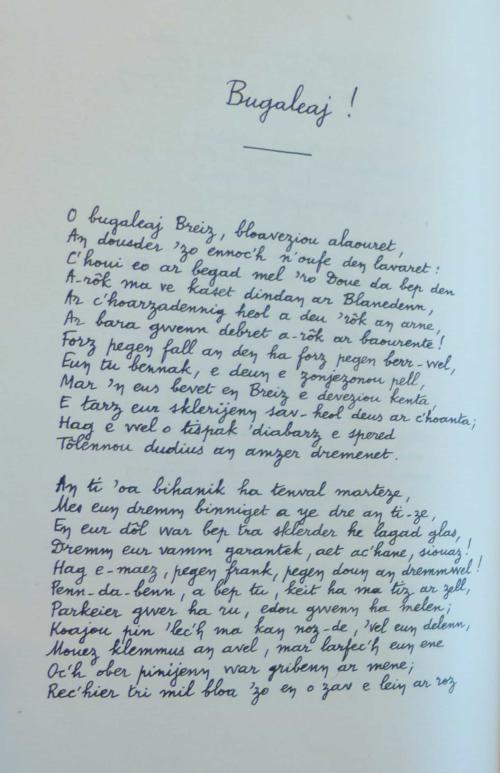 Bugaleaj !
O bugaleaj Breiz, bloaveziou alaouret,
An dousder 'zo ennoc'h n'oufe den lavaret :
C'houi eo ar begad mel 'ro Doue da bep den
A-rôk ma ve kaset dindan ar Blanedenn,
Ar c'hoarzadennig heol a deu 'rôk an arne,
Ar bara gwenn debret a-rôk ar baourentė !
Forz pegen fall an den ha forz pegen berr-wel,
Eun tu bennak, e deun e zonjezonou pell,
Mar 'n eus bevet en Breiz e deveziou kenta,
E tarz eur sklerijenn sav-heol deus ar c'hoanta ;
Hag e wel o tispak 'diabarz e spered
Tôlennou dudius an amzer dremenet.
An ti 'oa bihanik ha tenval marteze,
Mes eun dremm binniget a ye dre an ti-ze,
En eur dôl war bep tra sklerder he lagad glas,
Dremm eur vamm garantek, aet ac'hane, siouaz !
Hag e-maez, pegen frank, pegen doun an dremmwel !
Penn-da-benn, a bep tu, keit ha ma tiz ar zell,
Parkeier gwer ha ru, edou gwenn ha melen ;
Koajou pin 'lec'h ma kan noz-de, 'vel eun delenn,
Mouez klemmus an avel, mar larfec'h eun ene
Oc'h ober pinijenn war gribenn ar mene ;
Rec'hier tri mil bloa 'zo en o zav e lein ar roz